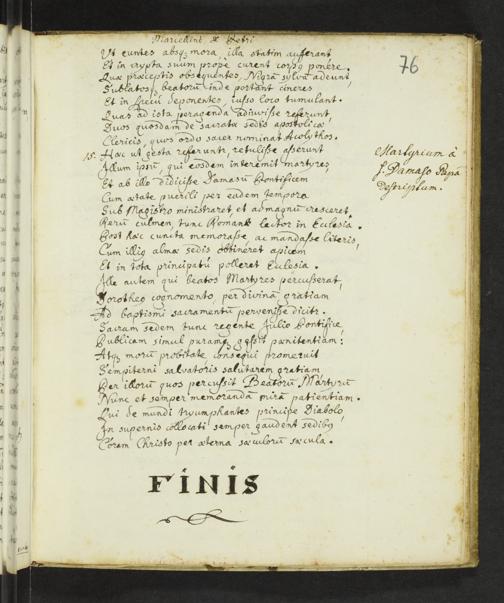 Marcellini, & Petri
76
Ut euntes absq; mora, illa statim aufferant
Et in crypta suum prope curent corpq ponere.
Quæ præceptis obsequentes, Nigrā sylvā adeunt,
Sublatosq; beatorū inde portant cineres
Et in deponentes, iusso loco tumulant.
Quas ad ista peragenda adiuvisse referunt,
Duos quosdam de sacratæ sedis apostolicæ
Clericis, quos ordo sacer nominat Acolythos.
15. Hæc ut gesta referunt, retulisse asserunt
Illum ipsū, qui eosdem interemit martyres,
Et ab illo didicisse Damasū Pontificem
Cum ætate puerili per eadem tempora
Sub Magistro ministraret, et ad magnū cresceret,
Rerū culmen, tunc Romanæ lector in Ecclesia.
Post hæc cuncta memorasse, ac mandasse literis,
Cum illiq almæ sedis obtineret apicem
Et in tota principatū polleret Ecclesia.
Ille autem qui beatos Martyres percusserat,
Dorotheq cognomento, per divinā gratiam
Ad baptismi sacramentū pervenisse dicitr.
Sacram sedem tunc regente Julio Pontifice,
Publicam simul gessit pænitentiam:
Atq; morū probitate consequi promeruit
Sempiterni salvatoris salutarem gratiam
Per illorū quos percussit Beatorū Martyrū
Nunc et semper memoranda mirā patientiam.
Qui de mundi tryumphantes principe Diabolo,
In supernis collocati semper gaudent sedibq
Coram Christo per æterna sæculorū sæcula.
Martyrium à
S. Damaso Papa
descriptum.
FINIS